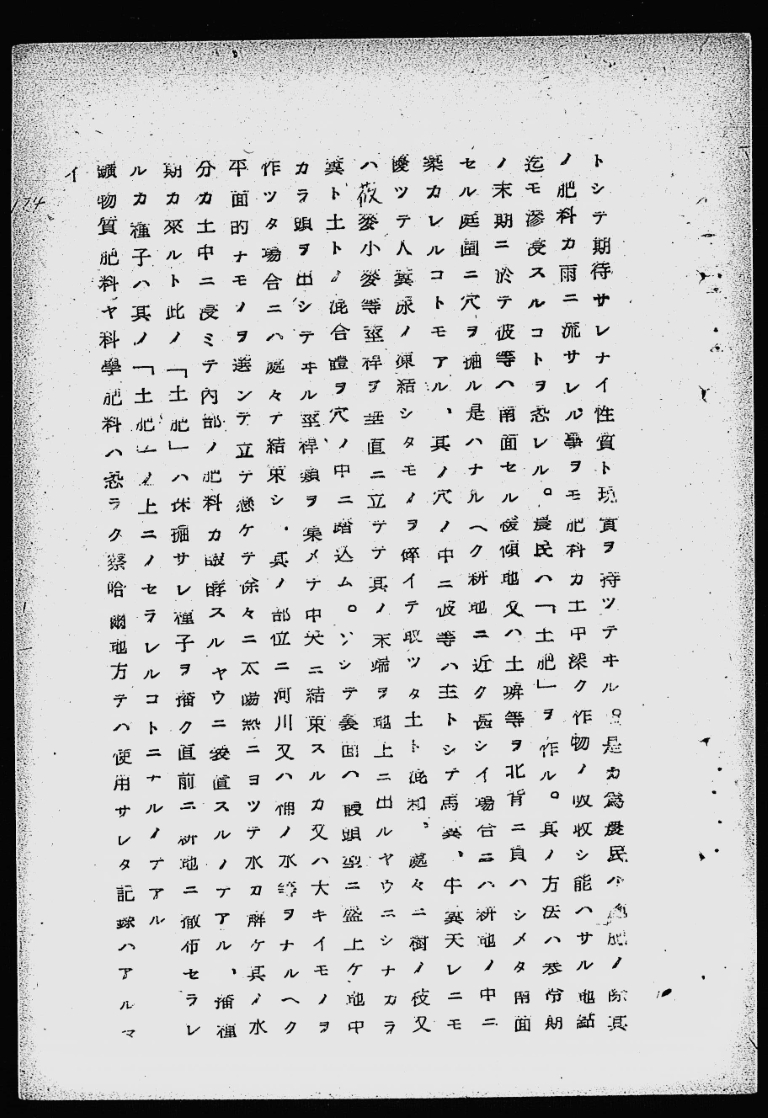 トシテ期待サレナイ性質ト現實ヲ持ツテヰル。是カ爲農民ハ肥ノ際其
ノ肥料カ雨ニ流サレル事ヲモ肥料カ土中深ク作物ノ吸收シ能ハサル地點
迄モ滲浸スルコトヲ恐レル。農民ハ「土肥」ヲ作ル。其ノ方法ハ冬期
ノ末期ニ於テ彼等ハ南面セル緩傾地又ハ土塀等ヲ北背ニ負ハシメタ南面
セル庭園ニ穴ヲ掘ル是ハナルヘク耕地ニ近ク甚シイ場合ニハ耕地ノ中ニ
築カレルコトモアル、其ノ穴ノ中ニ彼等ハ主トシテ馬糞、牛糞天レニモ
優ツテ人糞尿ノ凍結シタモノヲ碎イテ取ツタ土ト混和、處々ニ樹ノ枝又
ハ莜麥小麥等莖稈ヲ垂直ニ立テテ其ノ末端ヲ地上ニ出ルヤウニシナカラ
糞ト土トノ混合體ヲ穴ノ中ニ踏込ム。ソシテ表面ハ饅頭型ニ盛上ケ地中
カラ頭ヲ出シテヰル莖稈類ヲ集メテ中央ニ結束スルカ又ハ大キイモノヲ
作ツタ場合ニハ處々テ結束シ、其ノ部位ニ河川又ハ桶ノ水等ヲナルヘク
平面的ナモノヲ選ンテ立テ懸ケテ徐々ニ太陽熱ニヨツテ水カ解ケ其ノ水
分カ土中ニ浸ミテ內部ノ肥料カ醱酵スルヤウニ裝置スルノテアル、播種
期カ來ルト此ノ「土肥」ハ採掘サレ種子ヲ播ク直前ニ耕地ニ撒布セラレ
ルカ種子ハ其ノ「土肥」ノ上ニノセラレルコトニナルノテアル
鑛物質肥料ヤ科學肥料ハ恐ラク察哈爾地方テハ使用サレタ記錄ハアルマ
イ
174